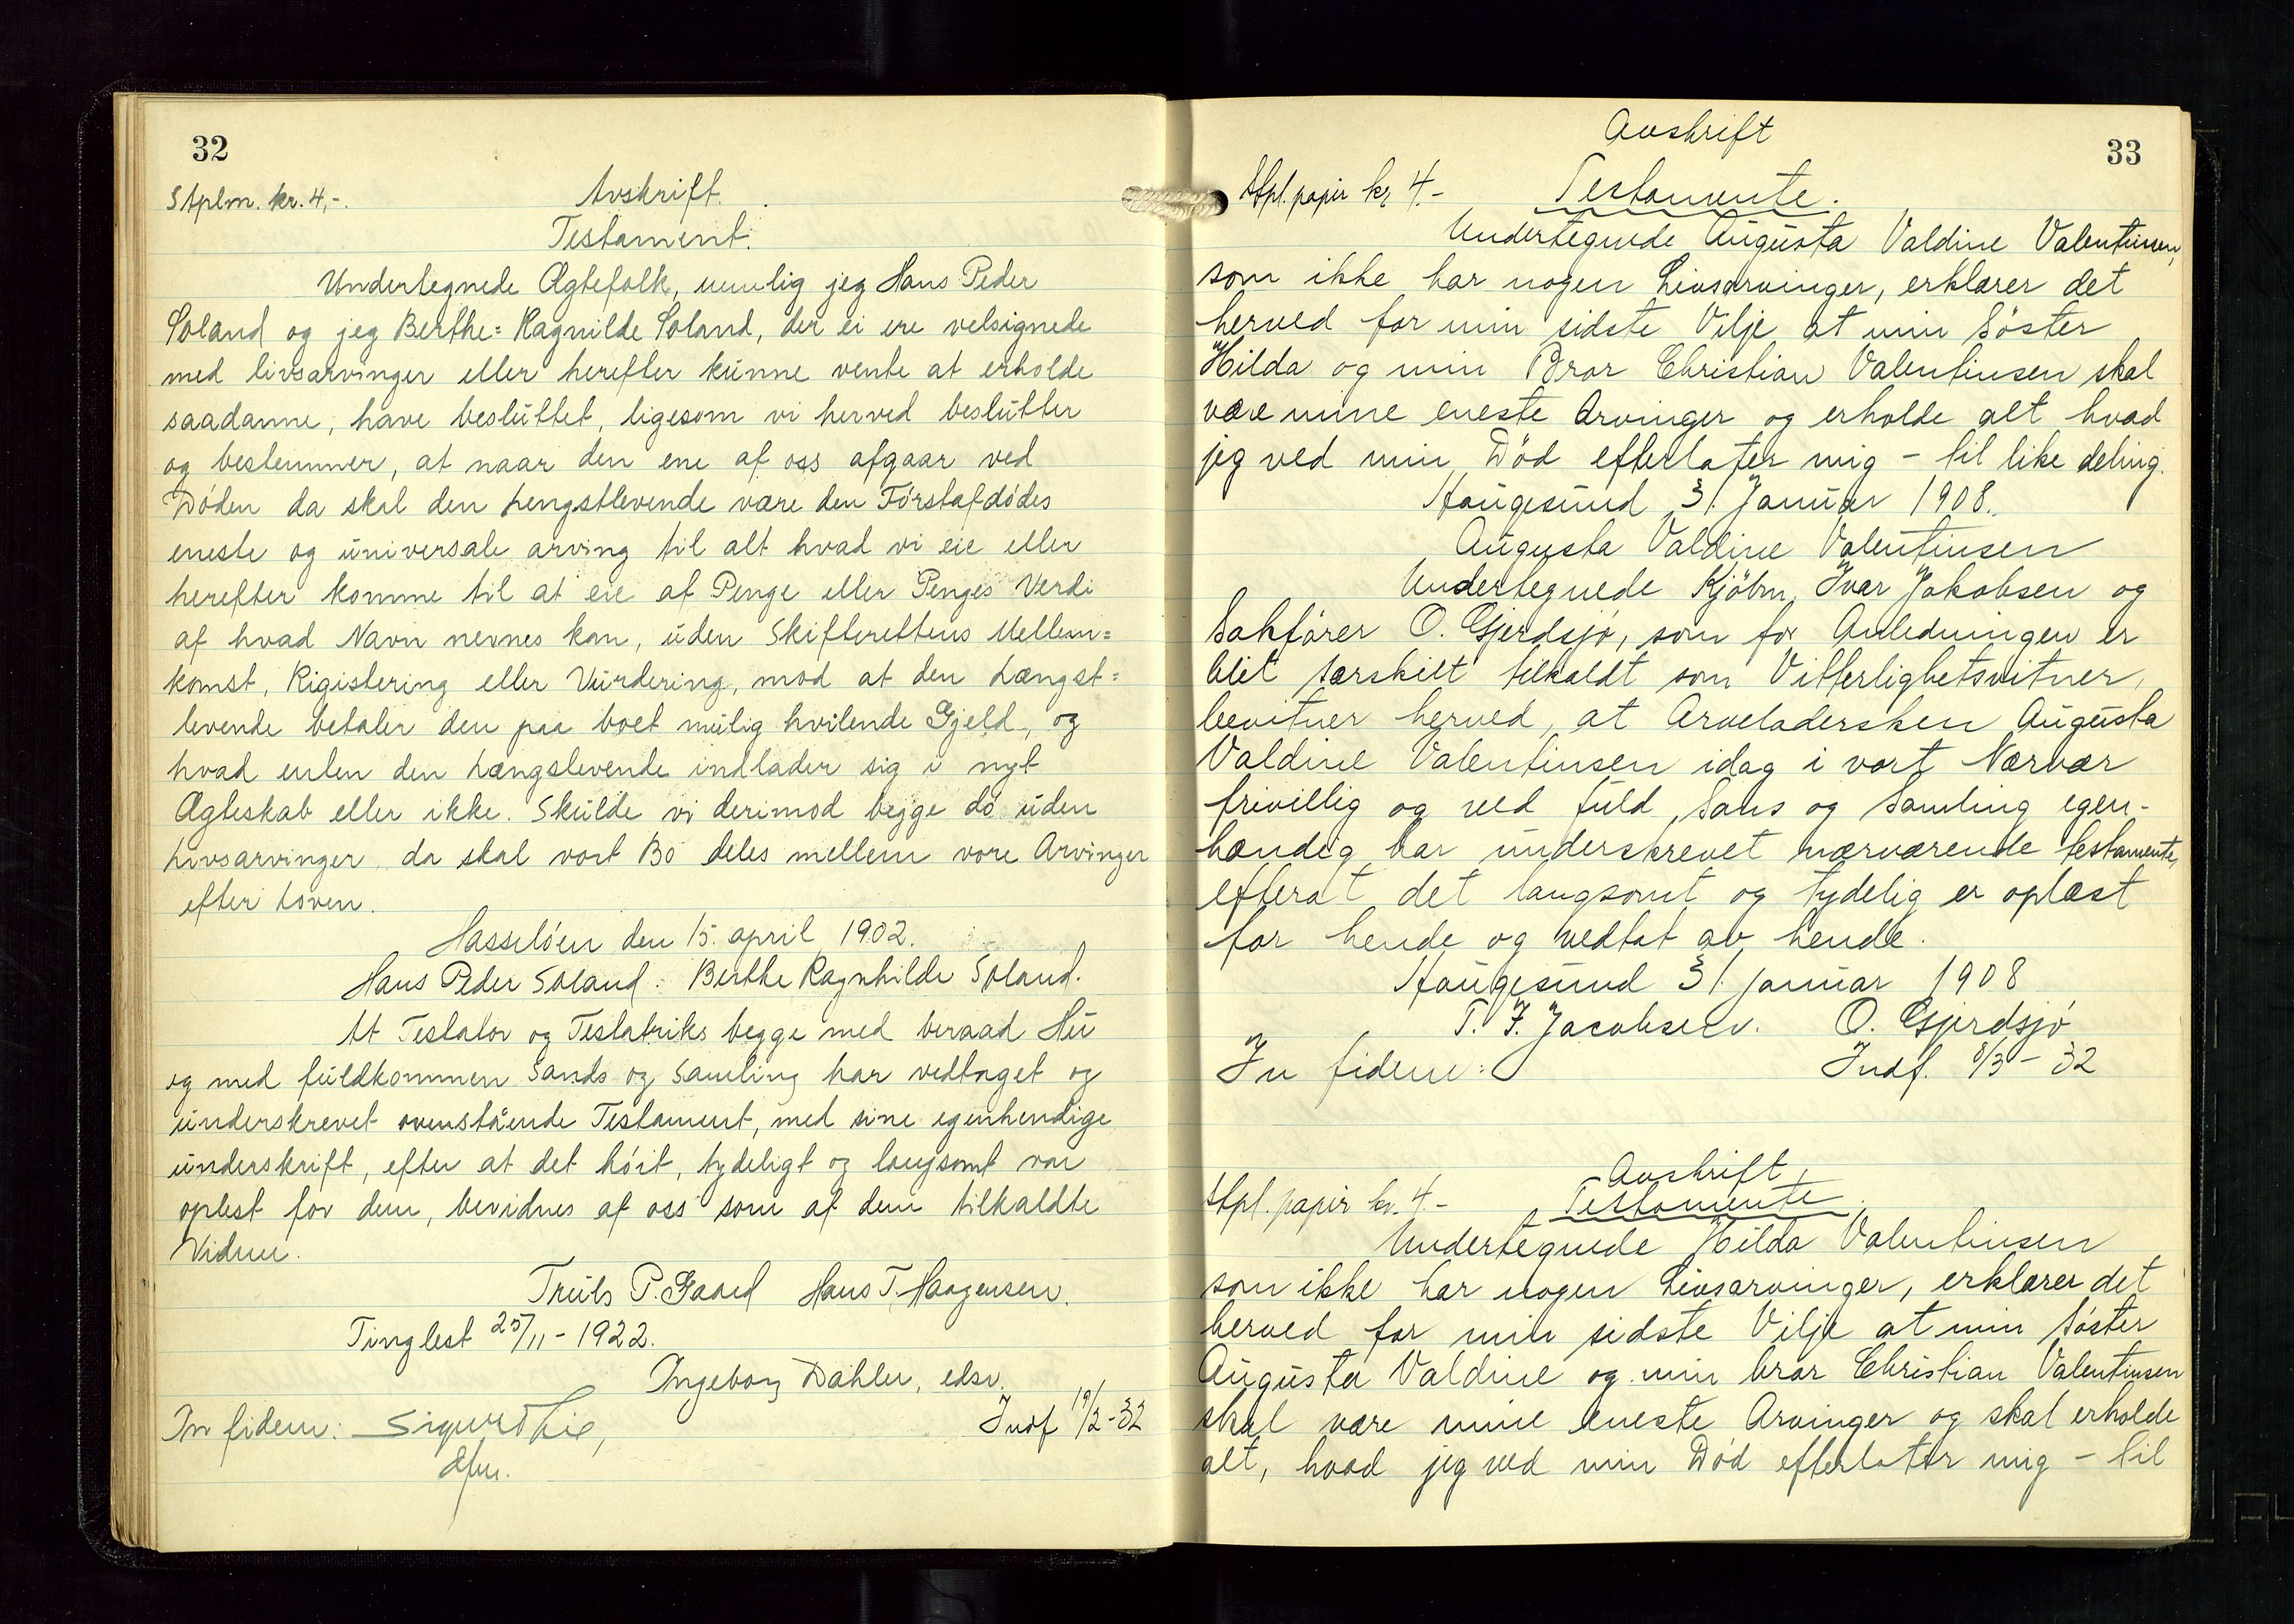 32
Stplm. kr. 4,-.
Avskrift.
Testament.
Undertegnede Ægtefolk, nemlig jeg Hans Peder
Soland og jeg Berthe= Ragnilde Soland, der ei ere velsignede
med livsarvinger eller herefter kunne vente at erholde
saadanne, have besluttet, ligesom vi herved beslutter
og bestemmer, at naar den ene af oss afgaar ved
Døden da skal den Lengstlevende være den Førstafdødes
eneste og universale arving til alt hvad vi eie eller
herefter komme til at eie af Penge eller Penges Verdi
af hvad Navn nevnes kan, uden Skifterettens Mellem=
komst, Rigistering eller Vurdering, mod at den Længst=
levende betaler den paa boet mulig hvilende Gjeld, og
hvad enten den Længslevende indlader sig i nyt
Ægteskab eller ikke. Skulde vi derimod begge dø uden
Livsarvinger, da skal vort Bo deles mellem vore Arvinger
efter Loven.
Hasseløen den 15. april 1902.
Hans Peder Soland. Berthe Ragnhilde Soland.
At Testator og Testatriks begge med beraad Hu
og med fuldkommen Sands og Samling har vedtaget og
underskrevet ovenstående Testament, med sine egenhendige
underskrift, efter at det høit, tydeligt og langsomt var
oplest for dem, bevidnes af oss som af dem tilkaldte
Vidner.
Truls P. Gaard Hans T. Haagensen.
Tinglest 25/11-1922.
Ingeborg Dahler, edsv.
In fidem: Sigurd Lie,
Indf 19/2-32
dfm.
33
Avskrift
Stpl. papir kr 4.-
Testamente.
Undertegnede Augusta Valdine Valentinsen,
som ikke har nogen Livsarvinger, erklærer det
herved for min sidste Vilje at min Søster
Hilda og min Bror Christian Valentinsen skal
være mine eneste Arvinger og erholde alt hvad
jeg ved min Død efterlater mig - til like deling.
Haugesund 31. Januar 1908.
Augusta Valdine Valentinsen
Undertegnede Kjøbm. Ivar Jakobsen og
Sakfører O. Gjerdsjø, som for Anledningen er
blit særskilt tilkaldt som Vitterlighetsvitner,
bevitner herved, at Arveladersken Augusta
Valdine Valentinsen idag i vort Nærvær
frivillig og ved fuld Sans og Samling egen-
hændig har underskrevet nærværende testamente,
efterat det langsomt og tydelig er oplæst
for hende og vedtat av hende.
Haugesund 31. januar 1908
T. J. Jacobsen. O. Gjerdsjø
In fidem:
Indf. 8/3-32
Avskrift,
Stpl. papir kr. 4.-
Testamente.
Undertegnede Hilda Valentinsen
som ikke har nogen Livsarvinger, erklærer det
herved for min sidste Vilje at min Søster
Augusta Valdine og min bror Christian Valentinsen
skal være mine eneste Arvinger og skal erholde
alt, hvad jeg ved min Død efterlater mig - til